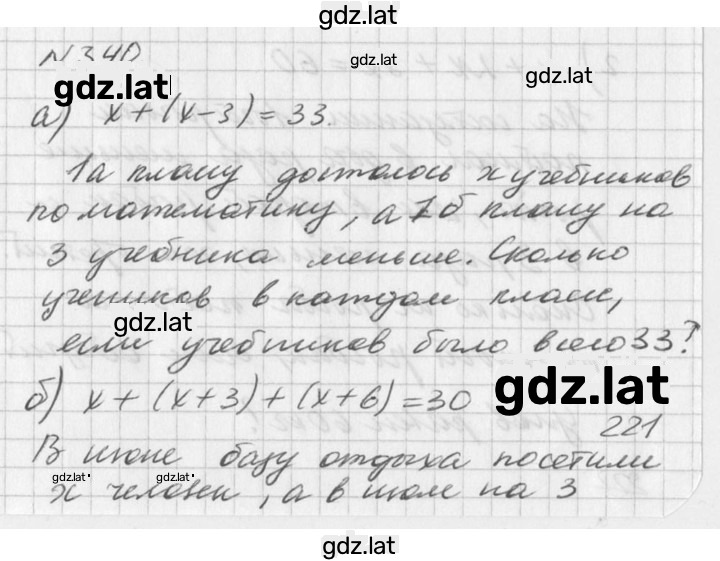 gdz.lat
N340
gdz.lat
gdz.lat
а) x + (x - 3) = 33.
1а классу досталось x учебников
по математику, а 1б классу на
3 учебника меньше. Сколько
учеников в каждом классе,
gdz.lat
если учебников было всего 33?
б) x + (x + 3) + (x + 6) = 30
gdz.lat
221
В июне базу отдыха посетили
gdz.lat
gdz.lat
x человек, а в июле на 3
gdz.lat